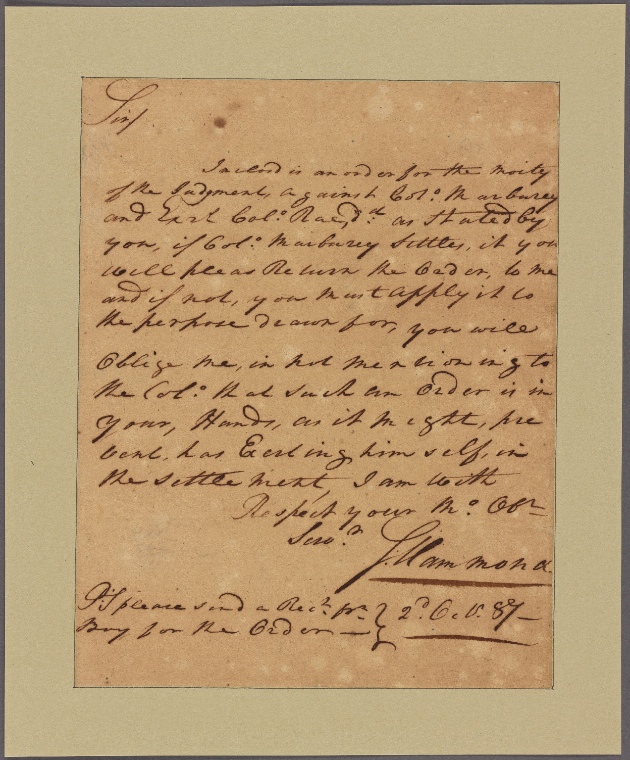 Sir,
Inclosd is an order for the Moity
of the Judgment, against Col.o Marburey
and Ex.rs Col.o Rae, d.d as Stated by
you, if Col.o Marburey Settles, it you
will pleas Return the Order, to me
and if not, you must apply it to
the perpose drawn for, you will
Oblige me, in not mentioning to
the Col.o that such an Order is in
your, Hands, as it might, pre
vent, his Exerting him self, in
the Settlement, I am With
Respect your M.o Ob.t
Serv.t
Hammond
PS please send a Rec.t pr
Boy for the Order — } 2.d Oct. 87 —